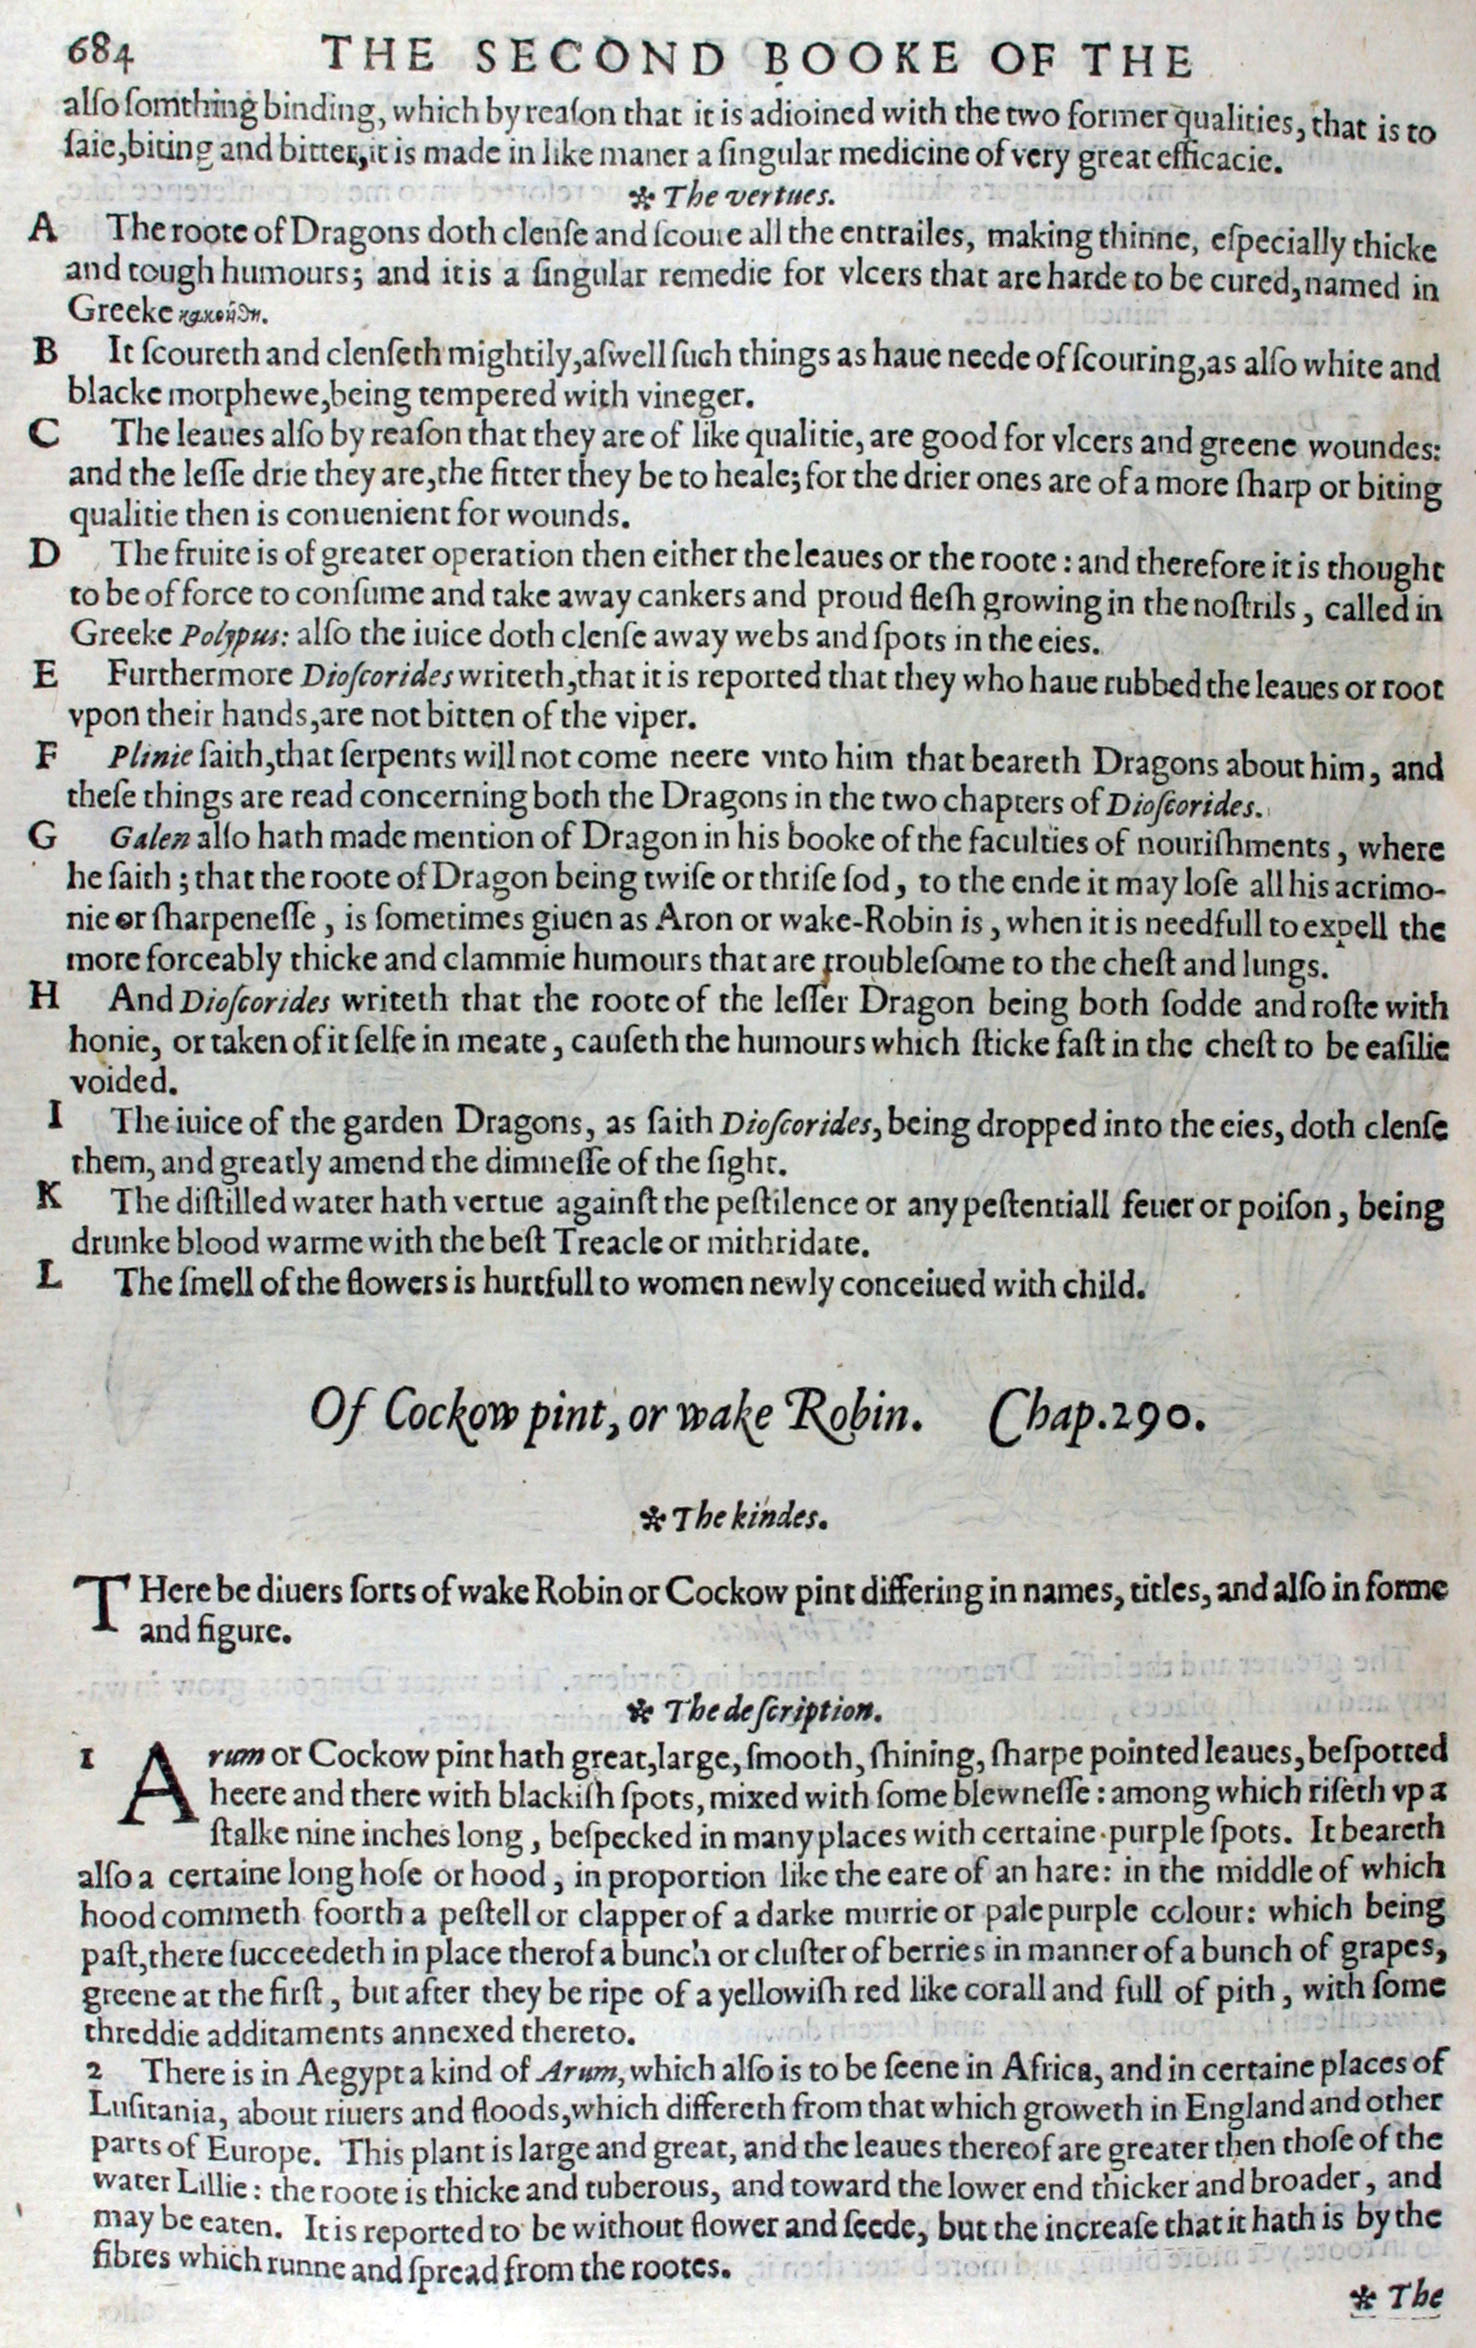 684 THE SECOND BOOKE OF THE
alſo ſomthing binding, which by reaſon that it is adioined with the two former qualities, that is to
ſaie, biting and bitter, it is made in like maner a ſingular medicine of very great efficacie.
✲ The vertues.
A The roote of Dragons doth clenſe and ſcoure all the entrailes, making thinne, eſpecially thicke
and tough humours; and it is a ſingular remedie for vlcers that are harde to be cured, named in
Greeke
B It ſcoureth and clenſeth mightily, aſwell ſuch things as haue neede of ſcouring, as alſo white and
blacke morphewe, being tempered with vineger.
C The leaues alſo by reaſon that they are of like qualitie, are good for vlcers and greene woundes:
and the leſſe drie they are, the fitter they be to heale; for the drier ones are of a more ſharp or biting
qualitie then is conuenient for wounds.
D The fruite is of greater operation then either the leaues or the roote: and therefore it is thought
to be of force to conſume and take away cankers and proud fleſh growing in the noſtrils, called in
Greeke Polypus: alſo the iuice doth clenſe away webs and ſpots in the eies.
E Furthermore Dioſcorides writeth, that it is reported that they who haue rubbed the leaues or root
vpon their hands, are not bitten of the viper.
F Plinie ſaith, that ſerpents will not come neere vnto him that beareth Dragons about him, and
theſe things are read concerning both the Dragons in the two chapters of Dioſcorides.
G Galen alſo hath made mention of Dragon in his booke of the faculties of nouriſhments, where
he ſaith; that the roote of Dragon being twiſe or thriſe ſod, to the ende it may loſe all his acrimo-
nie or ſharpeneſſe, is ſometimes giuen as Aron or wake-Robin is, when it is needfull to expell the
more forceably thicke and clammie humours that are troubleſome to the cheſt and lungs.
H And Dioſcorides writeth that the roote of the leſſer Dragon being both ſodde and roſte with
honie, or taken of it ſelfe in meate, cauſeth the humours which ſticke faſt in the cheſt to be eaſilie
voided.
I The iuice of the garden Dragons, as ſaith Dioſcorides, being dropped into the eies, doth clenſe
them, and greatly amend the dimneſſe of the ſight.
K The diſtilled water hath vertue againſt the peſtilence or any peſtentiall feuer or poiſon, being
drunke blood warme with the beſt Treacle or mithridate.
L The ſmell of the flowers is hurtfull to women newly conceiued with child.
Of Cockow pint, or wake Robin. Chap. 290.
✲ The kindes.
THere be diuers ſorts of wake Robin or Cockow pint differing in names, titles, and alſo in forme
and figure.
✲ The deſcription.
1 Arum or Cockow pint hath great, large, ſmooth, ſhining, ſharpe pointed leaues, beſpotted
heere and there with blackiſh ſpots, mixed with ſome blewneſſe: among which riſeth vp a
ſtalke nine inches long, beſpecked in many places with certaine purple ſpots. It beareth
alſo a certaine long hoſe or hood, in proportion like the eare of an hare: in the middle of which
hood commeth foorth a peſtell or clapper of a darke murrie or pale purple colour: which being
paſt, there ſucceedeth in place therof a bunch or cluſter of berries in manner of a bunch of grapes,
greene at the firſt, but after they be ripe of a yellowiſh red like corall and full of pith, with ſome
threddie additaments annexed thereto.
2 There is in Aegypt a kind of Arum, which alſo is to be ſeene in Africa, and in certaine places of
Luſitania, about riuers and floods, which differeth from that which groweth in England and other
parts of Europe. This plant is large and great, and the leaues thereof are greater then thoſe of the
water Lillie: the roote is thicke and tuberous, and toward the lower end thicker and broader, and
may be eaten. It is reported to be without flower and ſeede, but the increaſe that it hath is by the
fibres which runne and ſpread from the rootes.
✲ The